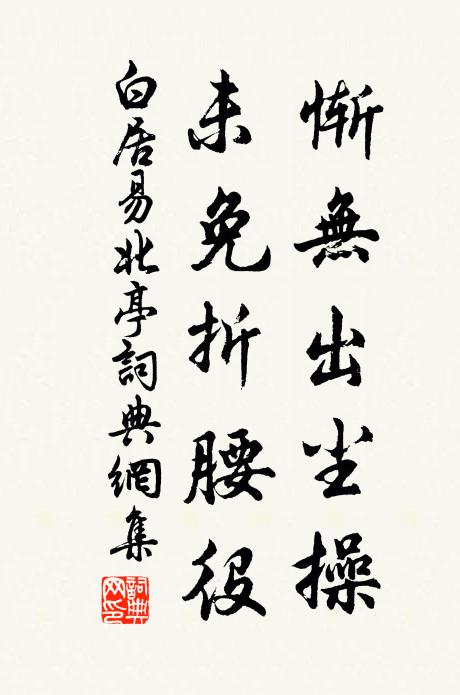 慚無出尘操
未免折腰役
白居易北亭詞典網集
詞典网印